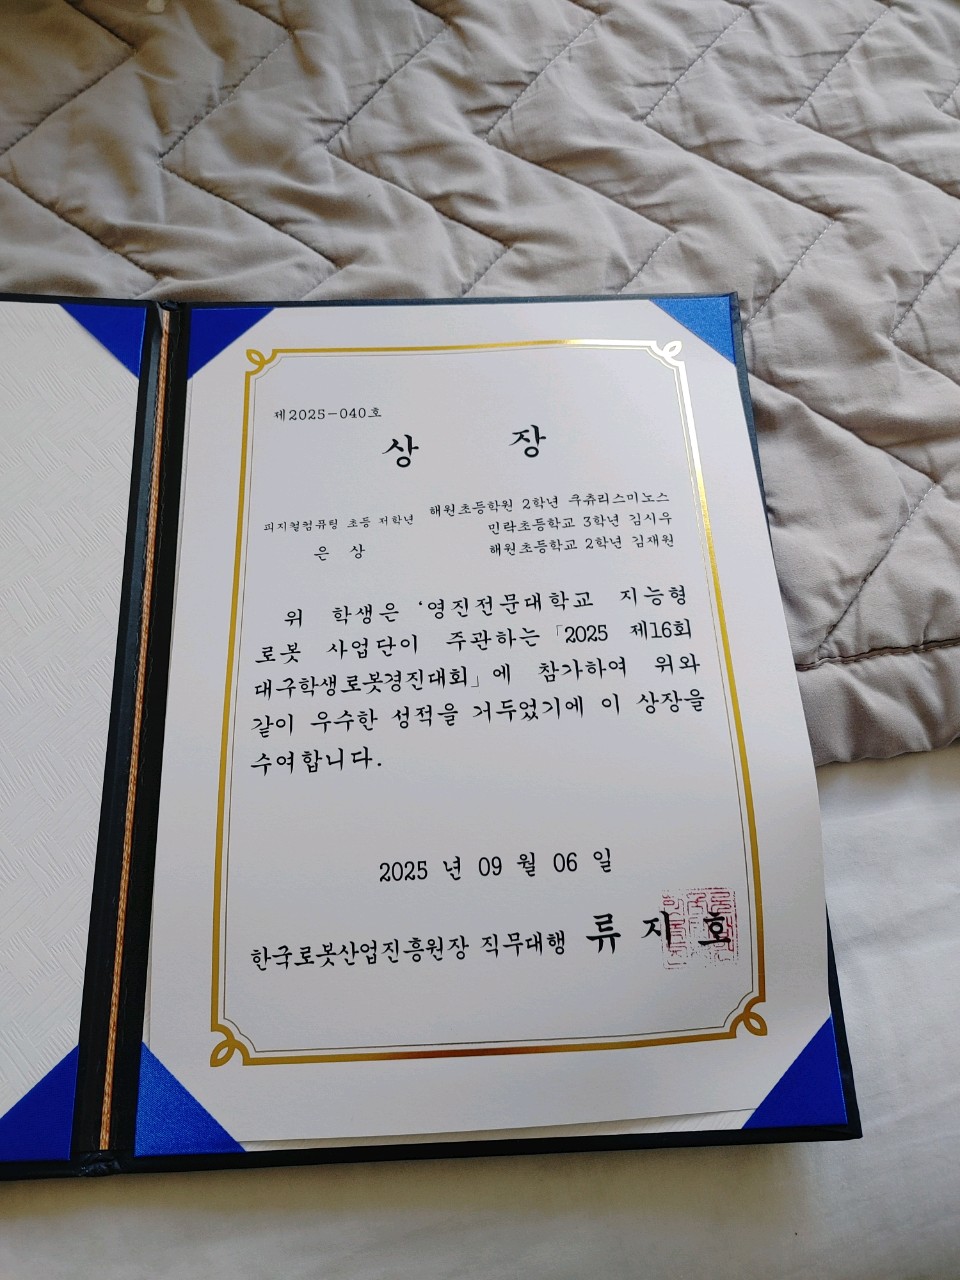 제2025-040호
상 장
피지컬컴퓨팅 초등 저학년
은 상
해원초등학원 2학년 쿠츄리스미노스
민락초등학교 3학년 김시우
해원초등학교 2학년 김재원
위 학생은 '영진전문대학교 지능형
로봇 사업단이 주관하는 「2025 제16회
대구학생로봇경진대회」에 참가하여 위와
같이 우수한 성적을 거두었기에 이 상장을
수여합니다.
2025 년 09 월 06 일
한국로봇산업진흥원장 직무대행 류 지 호